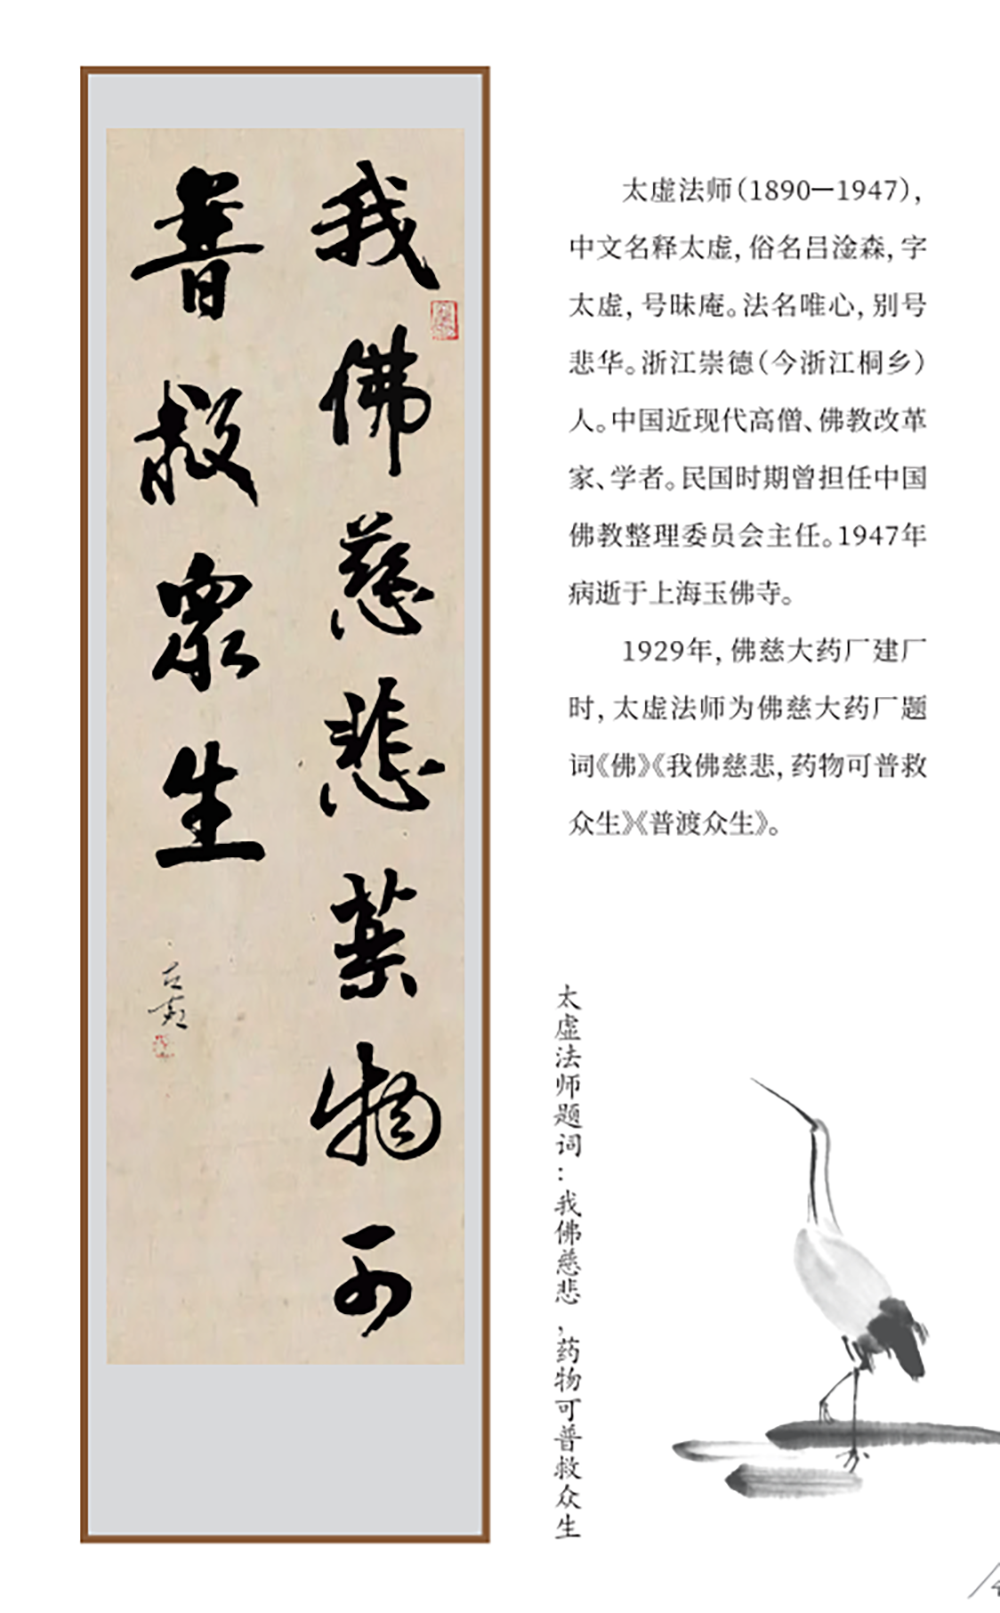 我佛慈悲藥物可
普救眾生
太虛
太虚法师（1890—1947），
中文名释太虚，俗名吕淦森，字
太虚，号昧庵。法名唯心，别号
悲华。浙江崇德（今浙江桐乡）
人。中国近现代高僧、佛教改革
家、学者。民国时期曾担任中国
佛教整理委员会主任。1947年
病逝于上海玉佛寺。
1929年，佛慈大药厂建厂
时，太虚法师为佛慈大药厂题
词《佛》《我佛慈悲，药物可普救
众生》《普渡众生》。
太虚法师题词：我佛慈悲，药物可普救众生